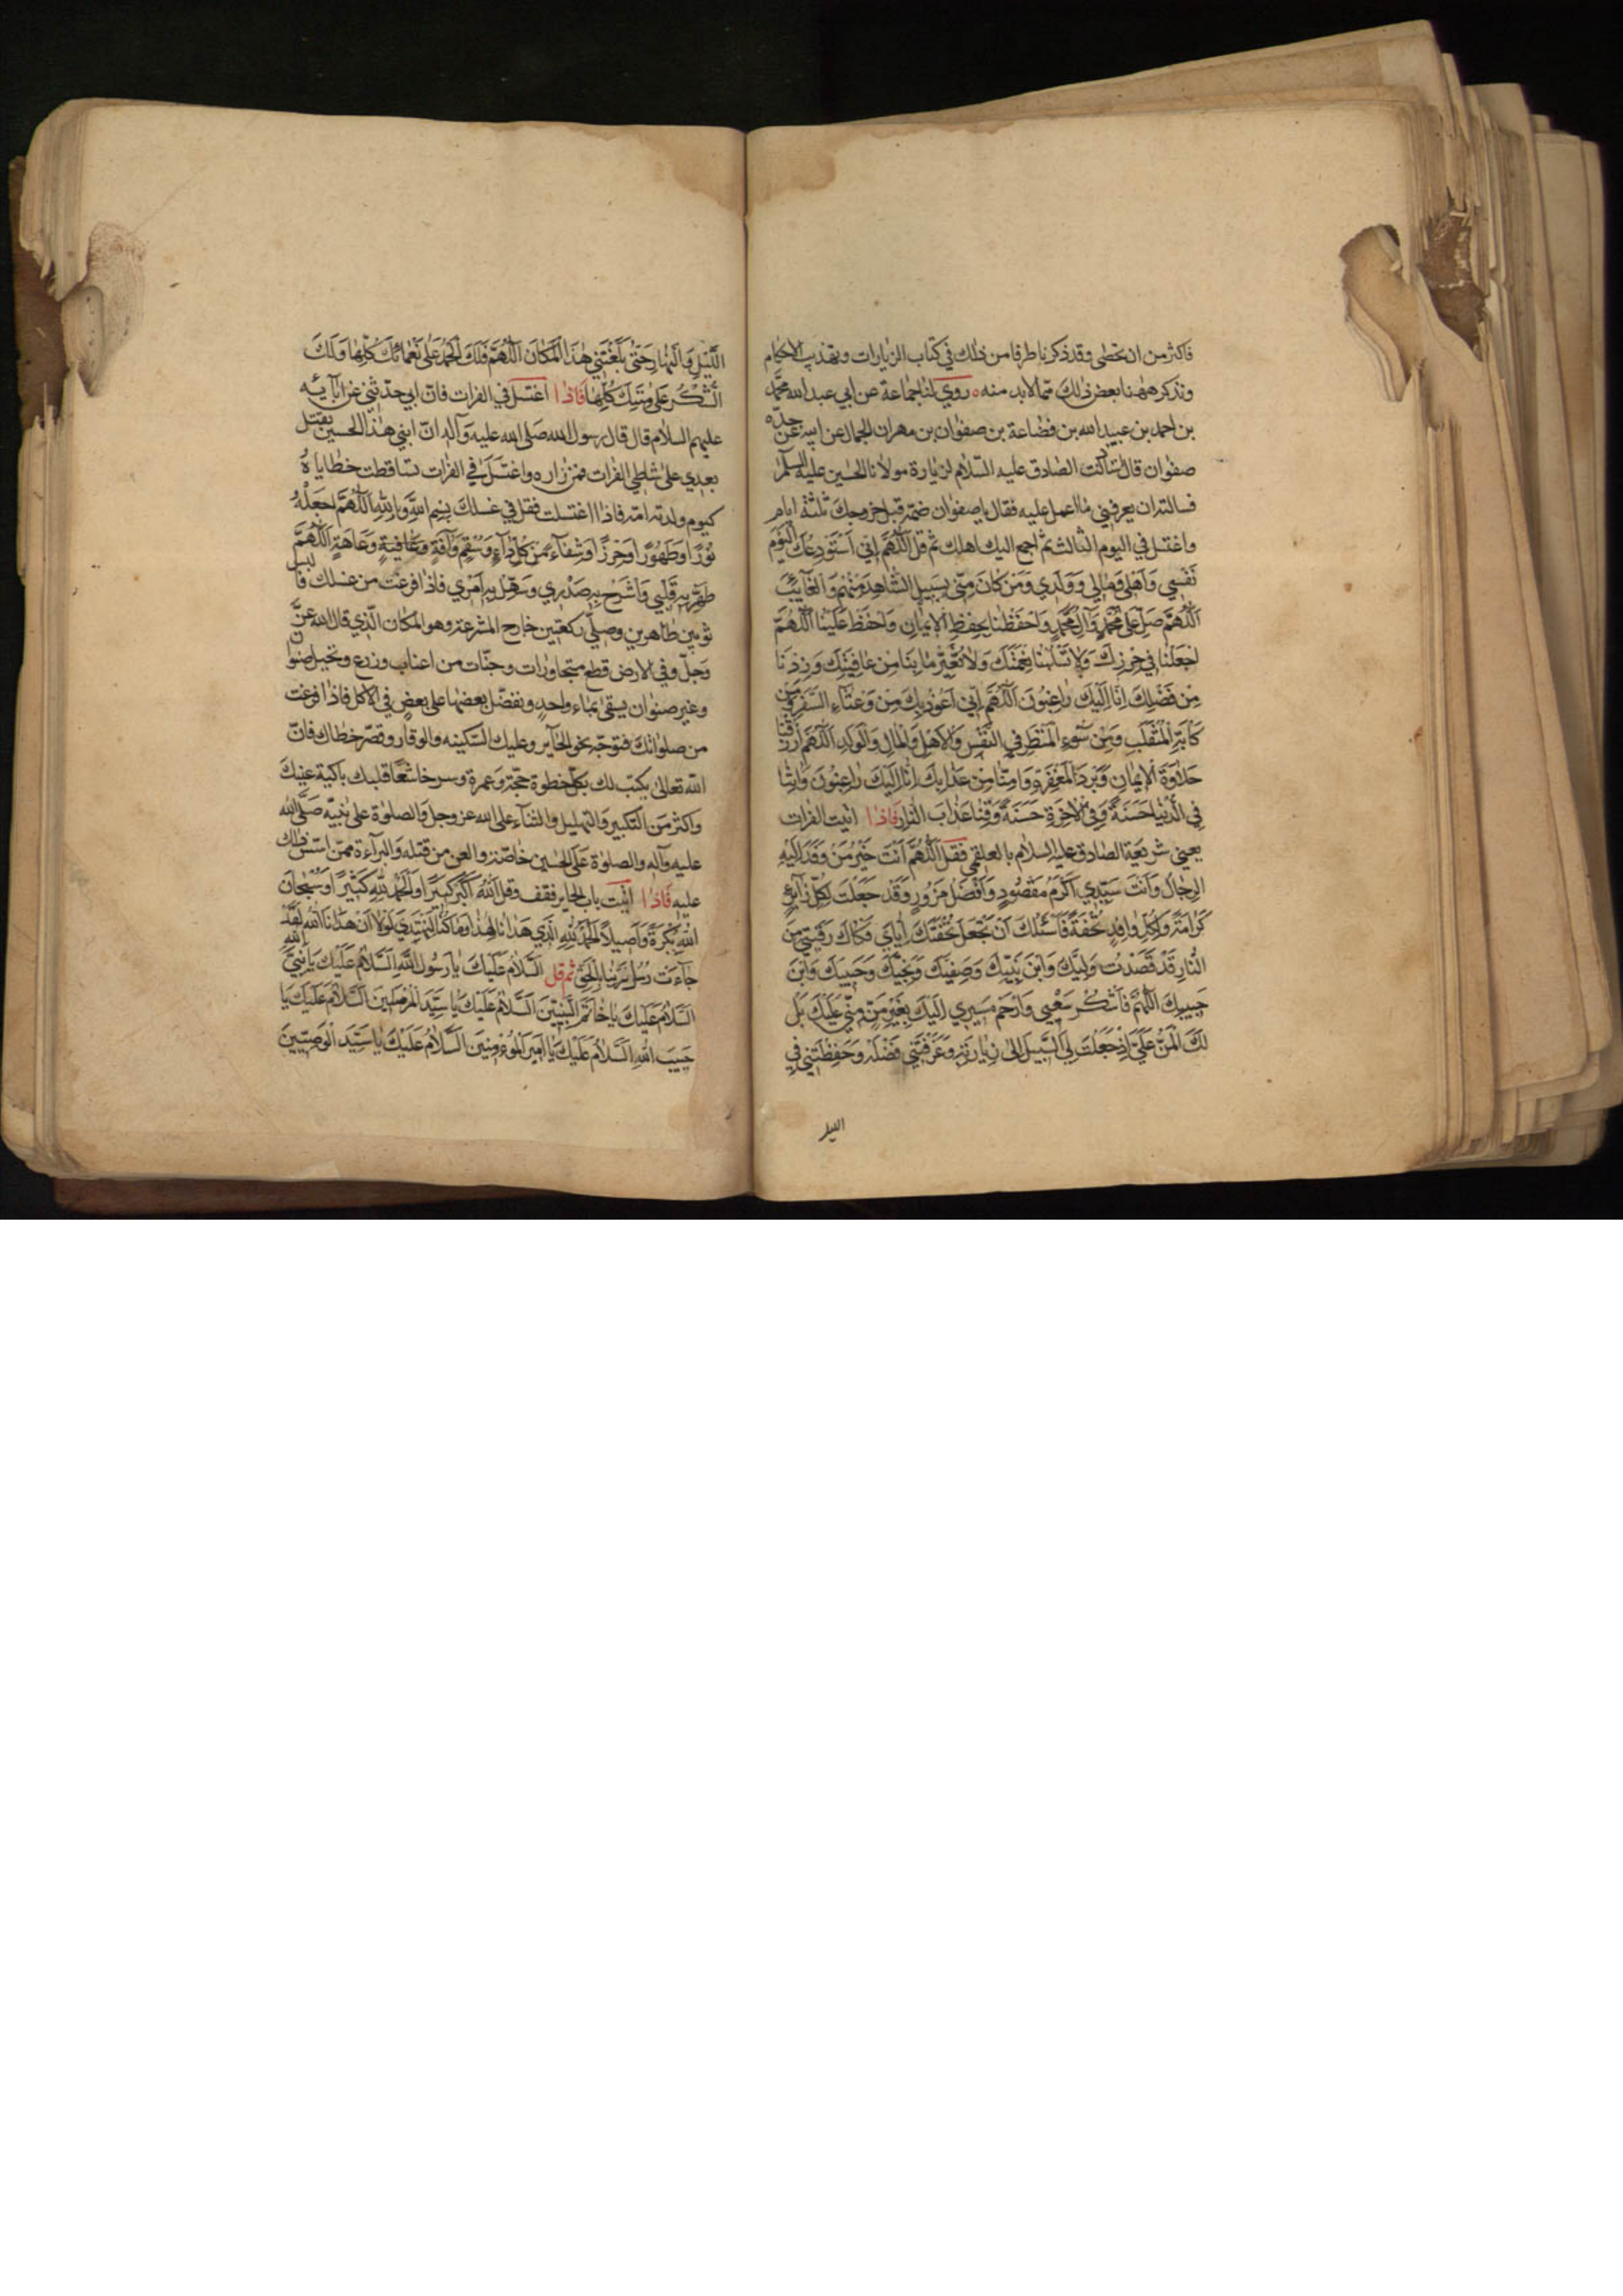 فاكثر من ان تحصى وقد ذكرنا طرفا من ذلك في كتاب الزيارات وتهذيب الاحكام
ونذكر ههنا بعض ذلك مما لابد منه روي لنا جماعة عن ابي عبد الله محمد
بن احمد بن عبيد الله بن قضاعة بن صفوان بن مهران الجمال عن ابيه عن جده
صفوان قال استاذنت الصادق عليه السلام لزيارة مولانا الحسين عليه السلم
فسالته ان يعرفني ما اعمل عليه فقال يا صفوان صم قبل خروجك ثلثة ايام
واغتسل في اليوم الثالث ثم اجمع اليك اهلك ثم قل اَللّهُمَّ اِنّي اَسْتَوْدِعُكَ اليَوْمَ
نَفْسِي وَاَهْلِي وَمَالِي وَوَلَدِي وَمَنْ كَانَ مِنّي بِسَبِيلٍ الشَّاهِدَ مِنْهُمْ وَالْغَآئِبَ
اَللّهُمَّ صَلِّ عَلى مُحَمَّدٍ وَآلِ مُحَمَّدٍ وَاحْفَظْنَا بِحِفْظِ الْاِيْمَانِ وَاحْفَظْ عَلَيْنَا اَللّهُمَّ
اجْعَلْنَا فِي حِرْزِكَ وَلاَ تَسْلُبْنَا نِعْمَتَكَ وَلاَ تُغَيِّرْ مَا بِنَا مِنْ عَافِيَتِكَ وَزِدْنَا
مِنْ فَضْلِكَ اِنّا اِلَيْكَ رَاغِبُونَ اَللّهُمَّ اِنّي اَعُوْذُ بِكَ مِنْ وَعْثَآءِ السَّفَرِ وَمِنْ
كَآبَةِ الْمُنْقَلَبِ وَمِنْ سُوْءِ الْمَنْظَرِ فِي النَّفْسِ وَالْاَهْلِ وَالْمَالِ وَالْوَلَدِ اَللّهُمَّ ارْزُقْنَا
حَلاَوَةَ الْاِيْمَانِ وَبَرْدَ الْمَغْفِرَةِ وَامِنَّا مِنْ عَذَابِكَ اِنّا اِلَيْكَ رَاغِبُونَ وَاتِنَا
فِي الدُّنْيَا حَسَنَةً وَفِي الْاخِرَةِ حَسَنَةً وَقِنَا عَذَابَ النَّارِ فاذا اتيت الفرات
يعني شريعة الصادق عليه السلام بالعلقمي فقل اَللّهُمَّ اَنْتَ خَيْرُ مَنْ وَفَدَ اِلَيْهِ
الرِّجَالُ وَاَنْتَ سَيِّدِي اَكْرَمُ مَقْصُودٍ وَاَفْضَلُ مَزُورٍ وَقَدْ جَعَلْتَ لِكُلِّ زَائِرٍ
كَرَامَةً وَلِكُلِّ وَافِدٍ تُحْفَةً فَاَسْئَلُكَ اَنْ تَجْعَلَ تُحْفَتَكَ اِيَّايَ فَكَاكَ رَقَبَتِي مِنَ
النَّارِ قَدْ قَصَدْتُ وَلِيَّكَ وَابْنَ نَبِيِّكَ وَصَفِيَّكَ وَنَجِيَّكَ وَحَبِيبَكَ وَابْنَ
حَبِيبِكَ اَللّهُمَّ فَاشْكُرْ سَعْيِي وَارْحَمْ مَسِيرِي اِلَيْكَ بِغَيْرِ مَنٍّ مِنّي عَلَيْكَ بَلْ
لَكَ الْمَنُّ عَلَيَّ اِذْ جَعَلْتَ لِيَ السَّبِيلَ اِلى زِيَارَتِهِ وَعَرَّفْتَنِي فَضْلَهُ وَحَفِظْتَنِي فِي
الليل
اللَّيْلِ وَالنَّهَارِ حَتّى بَلَّغْتَنِي هذَا الْمَكَانَ اَللّهُمَّ فَلَكَ الْحَمْدُ عَلى نَعْمَائِكَ كُلِّهَا وَلَكَ
الشُّكْرُ عَلى مِنَنِكَ كُلِّهَا فاذا اغتسل في الفرات فان ابي حدثني عن آبائه
عليهم السلام قال قال رسول الله صلى الله عليه وآله ان ابني هذا الحسين يقتل
بعدي على شاطي الفرات فمن زاره واغتسل في الفرات تساقطت خطاياه
كيوم ولدته امه فاذا اغتسلت فقل في غسلك بِسْمِ اللّهِ وَبِاللّهِ اَللّهُمَّ اجْعَلْهُ
نُوْرًا وَطَهُوْرًا وَحِرْزًا وَشِفَآءً مِنْ كُلِّ دَآءٍ وَسُقْمٍ وَآفَةٍ وَعَافِيَةٍ وَعَاهَةٍ اَللّهُمَّ
طَهِّرْ بِهِ قَلْبِي وَاشْرَحْ بِهِ صَدْرِي وَسَهِّلْ بِهِ اَمْرِي فاذا فرغت من غسلك فالبس
ثوبين طاهرين وصلي ركعتين خارج المشرعة وهو المكان الذي قال الله عز
وجل وفي الارض قطع متجاورات وجنات من اعناب وزرع ونخيل صنوان
وغير صنوان يسقى بماء واحد ونفضل بعضها على بعض في الاكل فاذا فرغت
من صلواتك فتوجه نحو الحاير وعليك السكينه والوقار وقصر خطاك فان
الله تعالى يكتب لك بكل خطوة حجة وعمرة وسر خاشعا قلبك باكية عينك
واكثر من التكبير والتهليل والثناء على الله عز وجل والصلوة على نبيه صلى الله
عليه وآله والصلوة على الحسين خاصة والعن من قتله والبرآءة ممن اسس ذلك
عليه فاذا اتيت باب الحاير فقف وقل اَللّهُ اَكْبَرُ كَبِيرًا وَالْحَمْدُ لِلّهِ كَثِيرًا وَسُبْحَانَ
اللّهِ بُكْرَةً وَاَصِيلاً اَلْحَمْدُ لِلّهِ الَّذِي هَدَانَا لِهذَا وَمَا كُنَّا لِنَهْتَدِيَ لَوْلاَ اَنْ هَدَانَا اللّهُ لَقَدْ
جَآءَتْ رُسُلُ رَبِّنَا بِالْحَقِّ ثم قل اَلسَّلاَمُ عَلَيْكَ يَا رَسُولَ اللّهِ اَلسَّلاَمُ عَلَيْكَ يَا نَبِيَّ اللّهِ
اَلسَّلاَمُ عَلَيْكَ يَا خَاتَمَ النَّبِيِّينَ اَلسَّلاَمُ عَلَيْكَ يَا سَيِّدَ الْمُرْسَلِينَ اَلسَّلاَمُ عَلَيْكَ يَا
حَبِيبَ اللّهِ اَلسَّلاَمُ عَلَيْكَ يَا اَمِيرَ الْمُؤْمِنِينَ اَلسَّلاَمُ عَلَيْكَ يَا سَيِّدَ الْوَصِيِّينَ